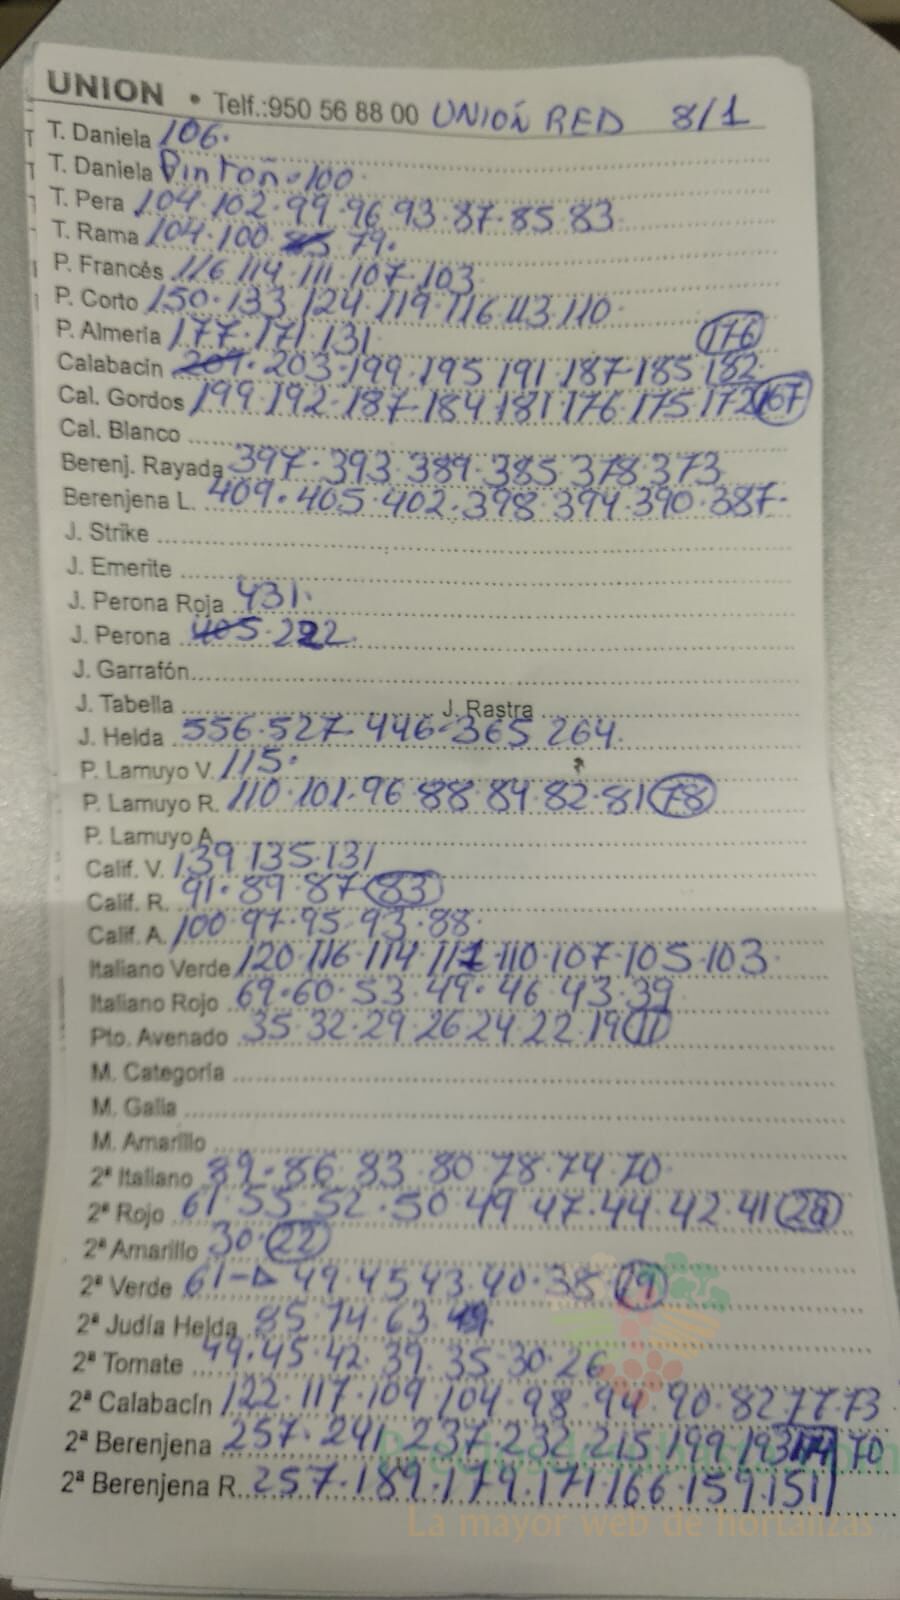 UNION • Telf.:950 56 88 00 UNIÓN RED 8/1
T. Daniela 106.
T. Daniela Pintón-100
T. Pera 104.102.99.96.93.87.85.83
T. Rama 104.100 85 79.
P. Francés 116 114.111.107.103
P. Corto 150.133.124.119.116.113.110
P. Almería 177.171.131 176
Calabacín 207.203.199.195 191.187.185 182
Cal. Gordos 199.192.187.184.181.176.175.172 167
Cal. Blanco
Berenj. Rayada 397.393.389.385.378.373
Berenjena L. 409.405.402.398.394.390.387-
J. Strike
J. Emerite
J. Perona Roja 431.
J. Perona 405.222
J. Garrafón
J. Tabella J. Rastra
J. Helda 556.527.446-365 264.
P. Lamuyo V. 115.
P. Lamuyo R. 110.101.96 88.84.82.81 78
P. Lamuyo A.
Calif. V. 139.135.131
Calif. R. 91.89.87 83
Calif. A. 100.97.95.93.88.
Italiano Verde 120.116.114.111.110.107.105.103
Italiano Rojo 69.60.53.49.46.43.39
Pto. Avenado 35.32.29.26 24 22.19 11
M. Categoría
M. Galia
M. Amarillo
2ª Italiano 89.86.83.80.78.74.70
2ª Rojo 61.55.52.50.49.47.44.42.41
2ª Amarillo 30.22
2ª Verde 61-▷ 49.45 43.40.38. 19
2ª Judía Helda 85.74.63
2ª Tomate 49.45.42.39.35 30.26
2ª Calabacín 122.117.109.104.98.94.90.82 77.73
2ª Berenjena 257.241.237.232.215.199.193 70
2ª Berenjena R. 257.189.179.171.166.159.151
La mayor web de hortalizas